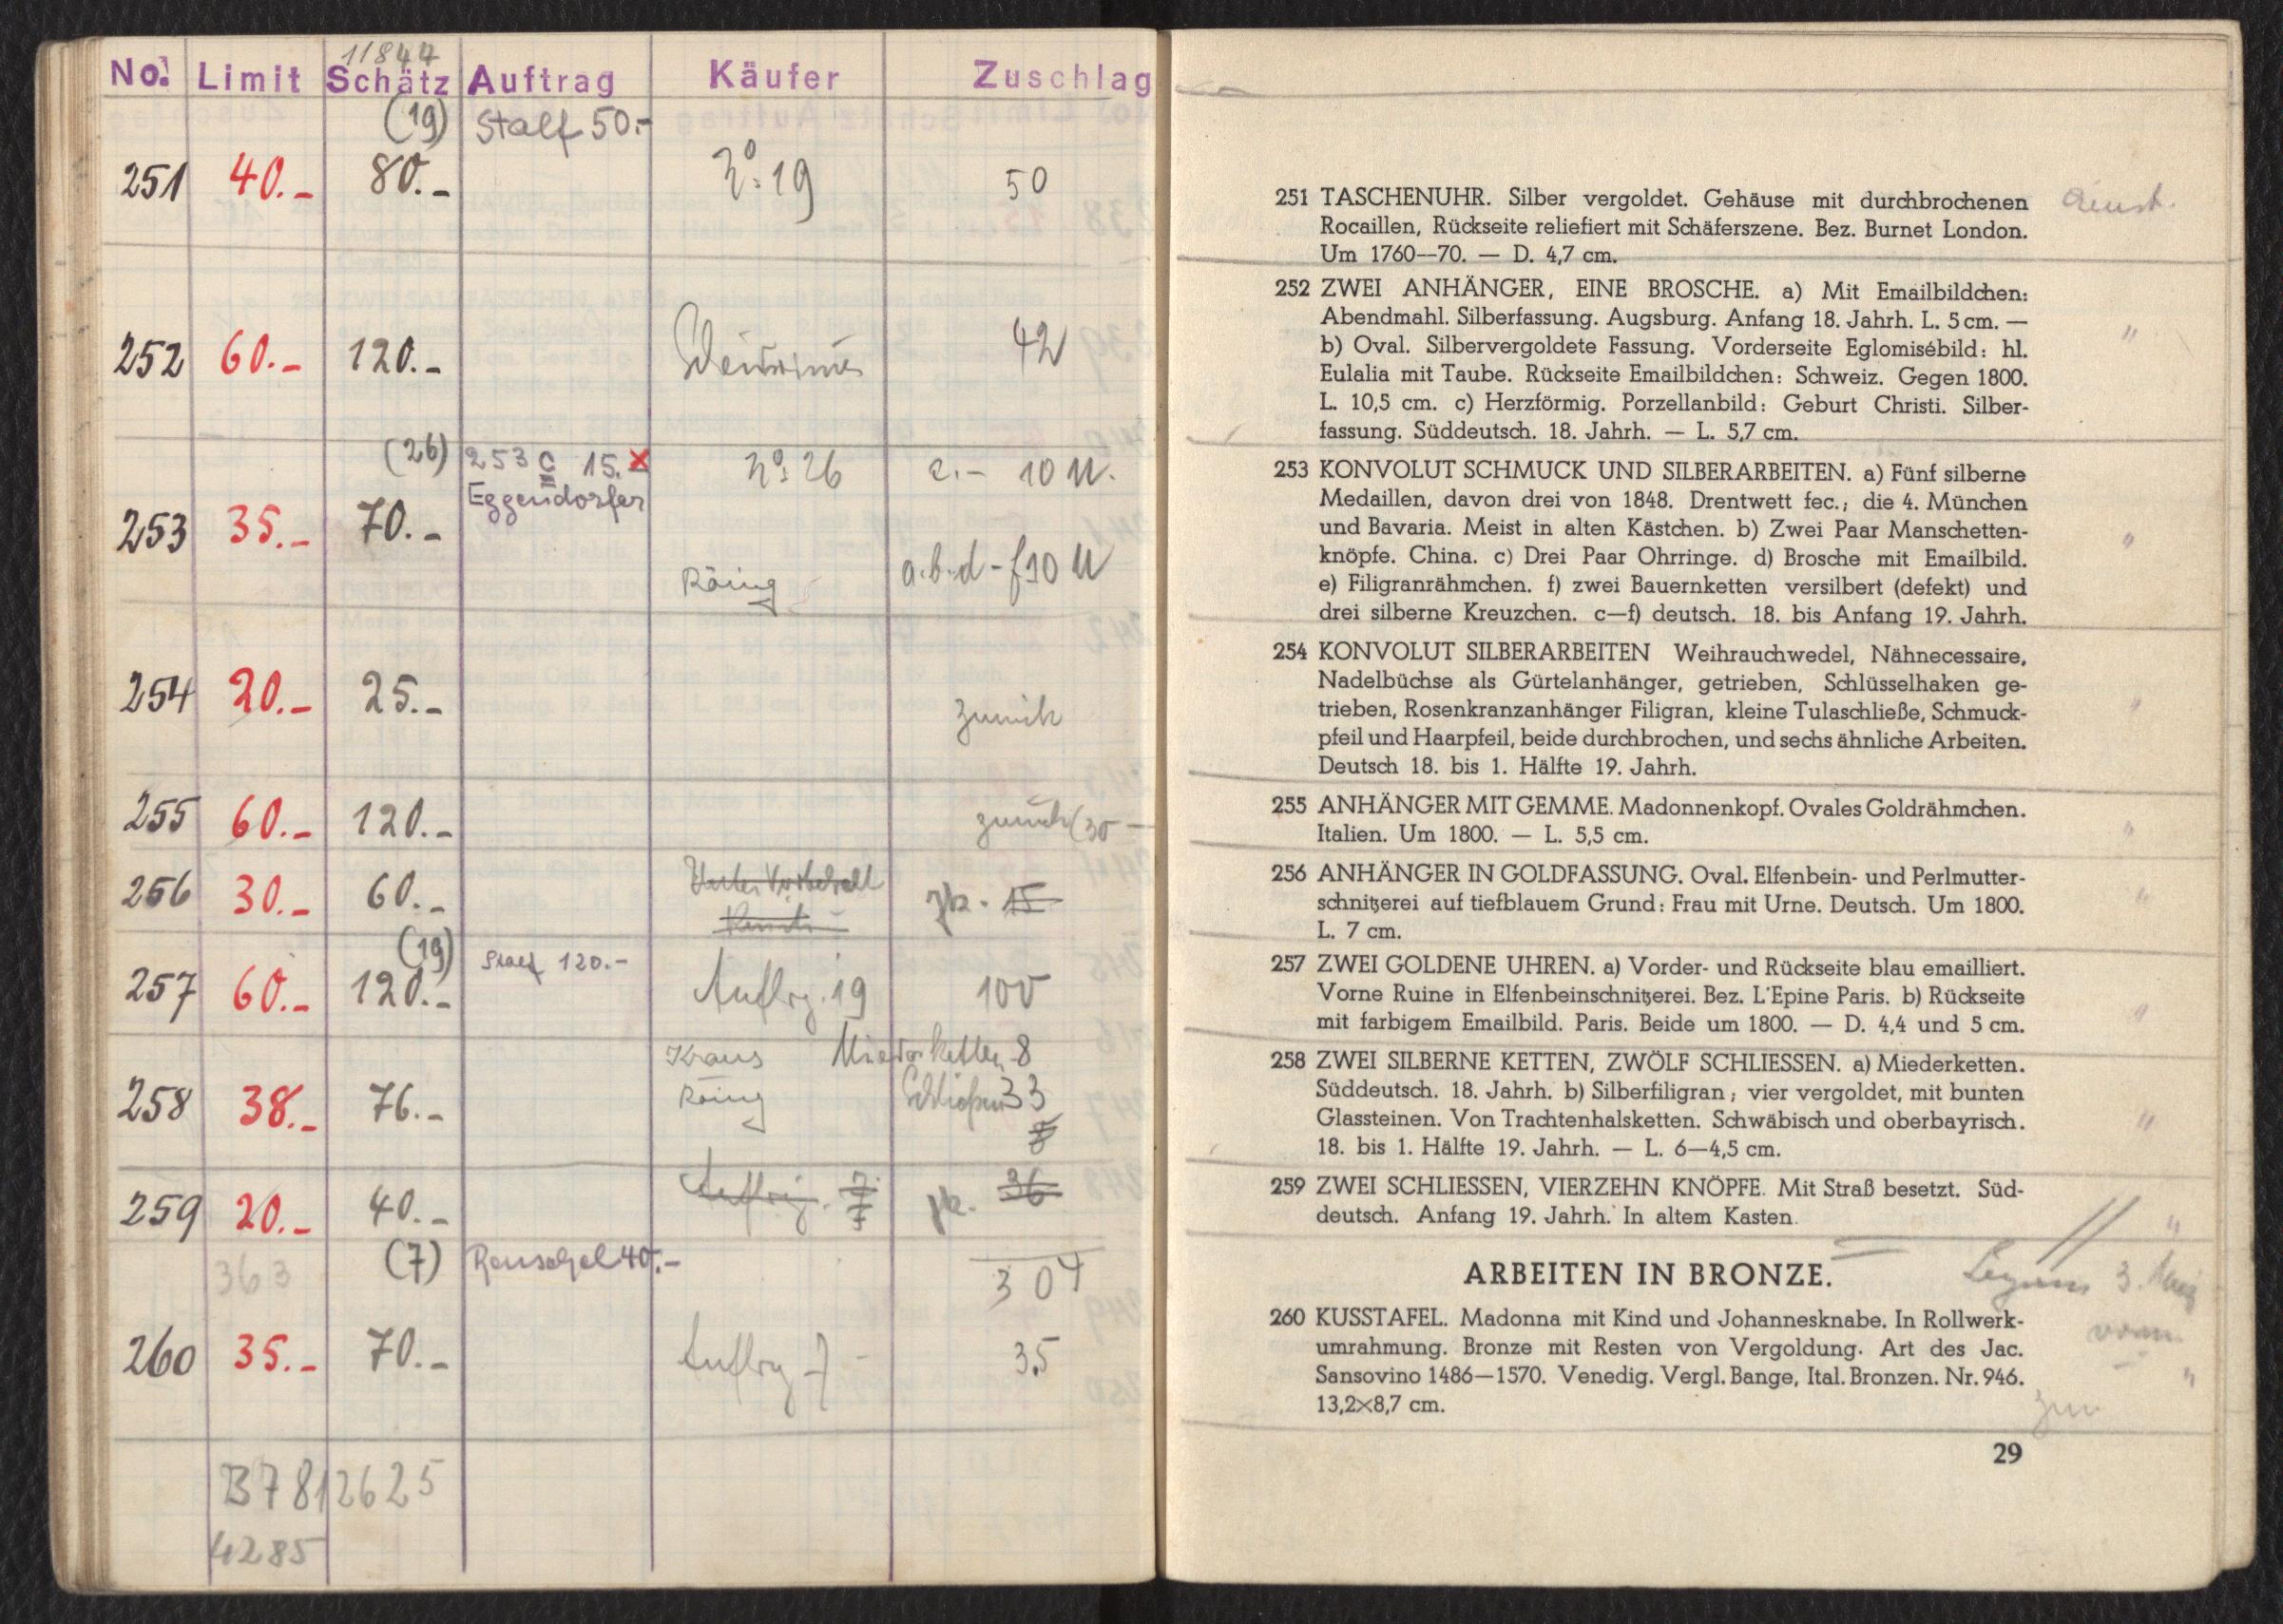 11844
No. Limit Schätz Auftrag Käufer Zuschlag
(19) Stalf 50.-
251 40.- 80.- No. 19 50
252 60.- 120.- 42
(26) 253 c 15. x No. 26 c.- 10 U.
Eggendorfer
253 35.- 70.-
Röing a.b.d-f 10 U
254 20.- 25.- zurück
255 60.- 120.- zurück (30-
256 30.- 60.- Unter Vorbehalt zk. 15
(19) Stalf 120.-
257 60.- 120.- Auftrg. 19 100
Kraus Miederketten 8
258 38.- 76.- Röing Schließen 33
8
259 20.- 40.- Auftrg. 7 zk. 36
363 (7) Reuschel 40.- 304
260 35.- 70.- Auftrg 7 35
B781 2625
4285
251 TASCHENUHR. Silber vergoldet. Gehäuse mit durchbrochenen
Rocaillen, Rückseite reliefiert mit Schäferszene. Bez. Burnet London.
Um 1760--70. — D. 4,7 cm.
252 ZWEI ANHÄNGER, EINE BROSCHE. a) Mit Emailbildchen:
Abendmahl. Silberfassung. Augsburg. Anfang 18. Jahrh. L. 5 cm. —
b) Oval. Silbervergoldete Fassung. Vorderseite Eglomisébild: hl.
Eulalia mit Taube. Rückseite Emailbildchen: Schweiz. Gegen 1800.
L. 10,5 cm. c) Herzförmig. Porzellanbild: Geburt Christi. Silber-
fassung. Süddeutsch. 18. Jahrh. — L. 5,7 cm.
253 KONVOLUT SCHMUCK UND SILBERARBEITEN. a) Fünf silberne
Medaillen, davon drei von 1848. Drentwett fec.; die 4. München
und Bavaria. Meist in alten Kästchen. b) Zwei Paar Manschetten-
knöpfe. China. c) Drei Paar Ohrringe. d) Brosche mit Emailbild.
e) Filigranrähmchen. f) zwei Bauernketten versilbert (defekt) und
drei silberne Kreuzchen. c—f) deutsch. 18. bis Anfang 19. Jahrh.
254 KONVOLUT SILBERARBEITEN Weihrauchwedel, Nähnecessaire,
Nadelbüchse als Gürtelanhänger, getrieben, Schlüsselhaken ge-
trieben, Rosenkranzanhänger Filigran, kleine Tulaschließe, Schmuck-
pfeil und Haarpfeil, beide durchbrochen, und sechs ähnliche Arbeiten.
Deutsch 18. bis 1. Hälfte 19. Jahrh.
255 ANHÄNGER MIT GEMME. Madonnenkopf. Ovales Goldrähmchen.
Italien. Um 1800. — L. 5,5 cm.
256 ANHÄNGER IN GOLDFASSUNG. Oval. Elfenbein- und Perlmutter-
schnitzerei auf tiefblauem Grund: Frau mit Urne. Deutsch. Um 1800.
L. 7 cm.
257 ZWEI GOLDENE UHREN. a) Vorder- und Rückseite blau emailliert.
Vorne Ruine in Elfenbeinschnitzerei. Bez. L'Epine Paris. b) Rückseite
mit farbigem Emailbild. Paris. Beide um 1800. — D. 4,4 und 5 cm.
258 ZWEI SILBERNE KETTEN, ZWÖLF SCHLIESSEN. a) Miederketten.
Süddeutsch. 18. Jahrh. b) Silberfiligran; vier vergoldet, mit bunten
Glassteinen. Von Trachtenhalsketten. Schwäbisch und oberbayrisch.
18. bis 1. Hälfte 19. Jahrh. — L. 6—4,5 cm.
259 ZWEI SCHLIESSEN, VIERZEHN KNÖPFE. Mit Straß besetzt. Süd-
deutsch. Anfang 19. Jahrh. In altem Kasten.
ARBEITEN IN BRONZE.
260 KUSSTAFEL. Madonna mit Kind und Johannesknabe. In Rollwerk-
umrahmung. Bronze mit Resten von Vergoldung. Art des Jac.
Sansovino 1486—1570. Venedig. Vergl. Bange, Ital. Bronzen. Nr. 946.
13,2×8,7 cm.
29